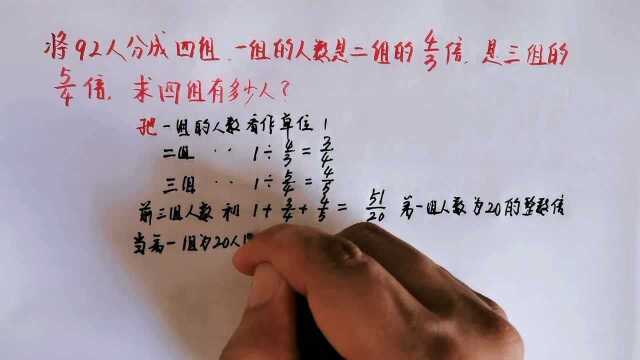 将92人分成四组,一组的人数是二组的4/3倍,是三组的
5/4倍,求四组有多少人?
把一组的人数看作单位1
二组 〃 1÷4/3=3/4
三组 〃 1÷5/4=4/5
前三组人数和 1+3/4+4/5=51/20 第一组人数为20的整数倍
当第一组为20人